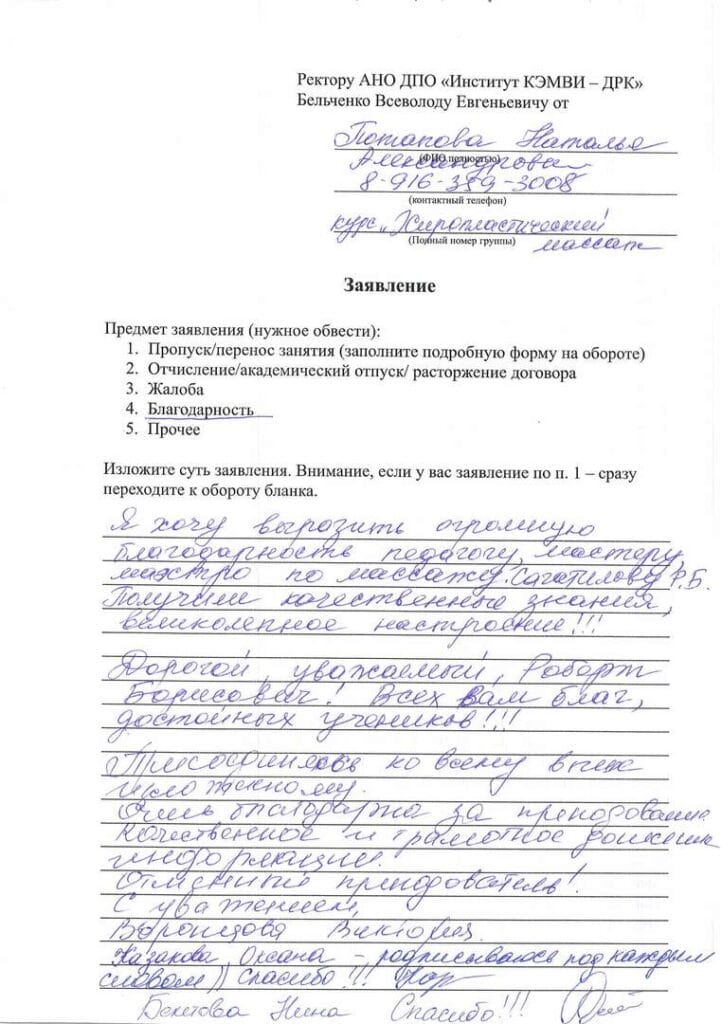 Ректору АНО ДПО «Институт КЭМВИ – ДРК»
Бельченко Всеволоду Евгеньевичу от
Потапова Наталья
Александровна
(ФИО полностью)
8-916-359-3008
(контактный телефон)
курс „Хиропластический
(Полный номер группы)
массаж
Заявление
Предмет заявления (нужное обвести):
1. Пропуск/перенос занятия (заполните подробную форму на обороте)
2. Отчисление/академический отпуск/ расторжение договора
3. Жалоба
4. Благодарность
5. Прочее
Изложите суть заявления. Внимание, если у вас заявление по п. 1 – сразу
переходите к обороту бланка.
Я хочу выразить огромную
благодарность педагогу, мастеру,
маэстро по массажу. Сагатилову Р.Б.
Получили качественные знания,
великолепное настроение!!!
Дорогой, уважаемый, Роберт
Борисович! Всех вам благ,
достойных учеников!!!
Присоединяюсь ко всему выше
изложенному.
Очень благодарна за преподование
Качественное и грамотное
информации.
Отменный преподователь!
С уважением,
Воронцова Виктория.
Казакова Оксана – подписываюсь под каждым
словом)) Спасибо!!!
Бектова Нина Спасибо!!!